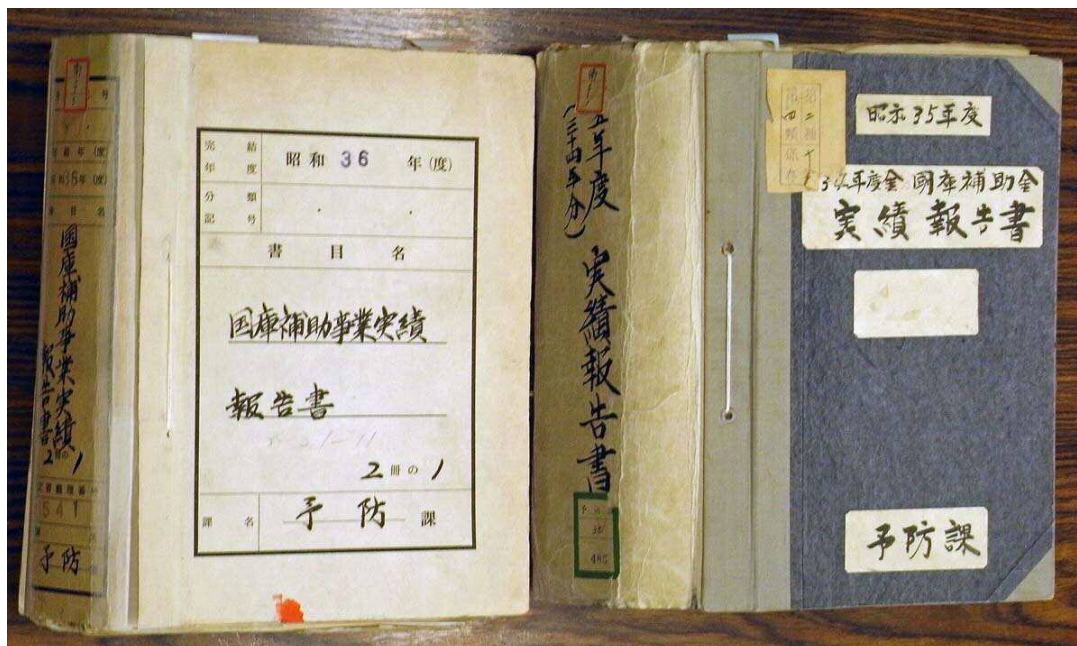 昭和36年(度)
国庫補助事業実績
報告書
2冊の1
541
予防
完結年度
昭和 36 年(度)
分類記号
書目名
国庫補助事業実績
報告書
2冊の1
課名 予防課
五年度
(三十四年分)
実績報告書
35
485
昭和35年度
国庫補助金
実績報告書
予防課